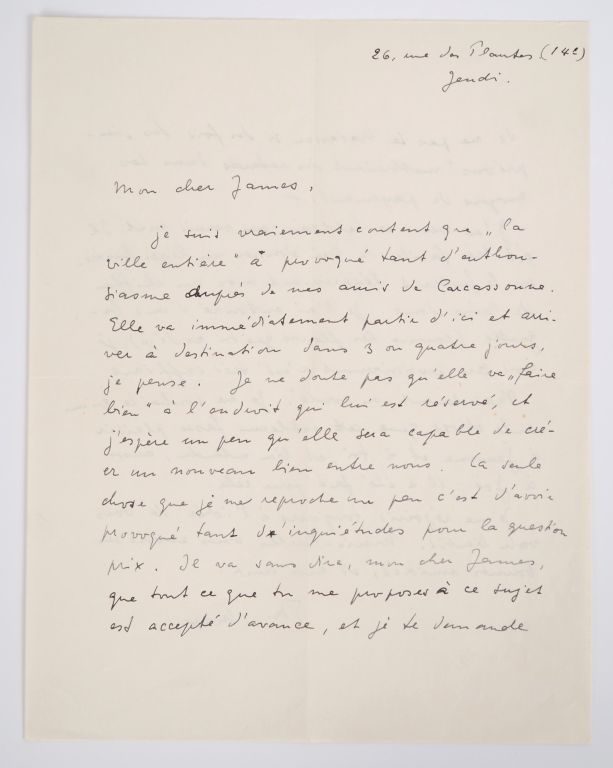 26, rue des Plantes (14e)
Jeudi.
Mon cher James,
je suis vraiement content que „la
ville entière" a provoqué tant d'enthou-
siasme auprés de nos amis de Carcassonne.
Elle va immédiatement partir d'ici et arri-
ver à destination dans 3 ou quatre jours,
je pense. Je ne doute pas qu'elle va „faire
bien" à l'endroit qui lui est réservé, et
j'espère un peu qu'elle sera capable de cré-
er un nouveau lien entre nous. La seule
chose que je me reproche un peu c'est d'avoir
provoqué tant d'inquiétudes pour la question
prix. Il va sans dire, mon cher James,
que tout ce que tu me proposes à ce sujet
est accepté d'avance, et je te demande